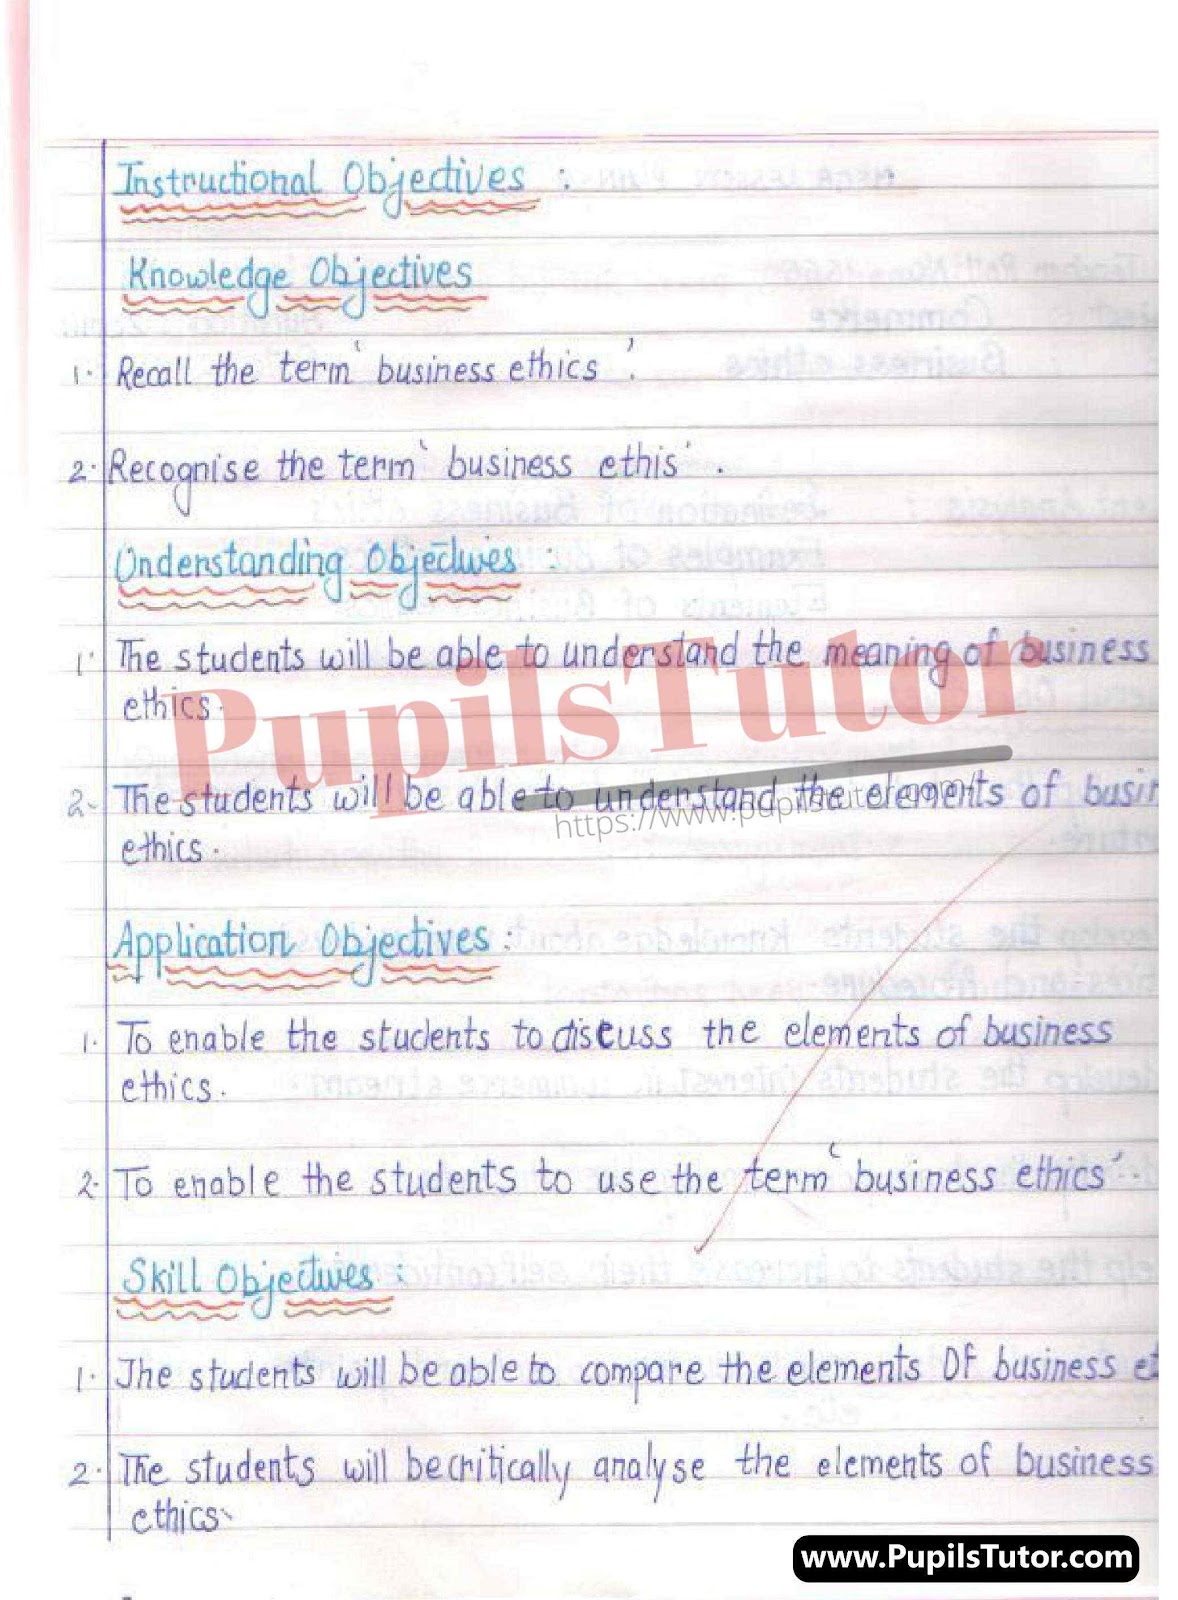 Instructional Objectives :
Knowledge Objectives
1. Recall the term 'business ethics'.
2. Recognise the term 'business ethis'.
Understanding Objectives :
1. The students will be able to understand the meaning of business
ethics.
PupilsTutor
2. The students will be able to understand the elements of busin
https://www.pupilstutor.com/
ethics.
Application Objectives :
1. To enable the students to discuss the elements of business
ethics.
2. To enable the students to use the term 'business ethics'.
Skill Objectives :
1. The students will be able to compare the elements OF business et
2. The students will be critically analyse the elements of business
ethics.
www.PupilsTutor.com